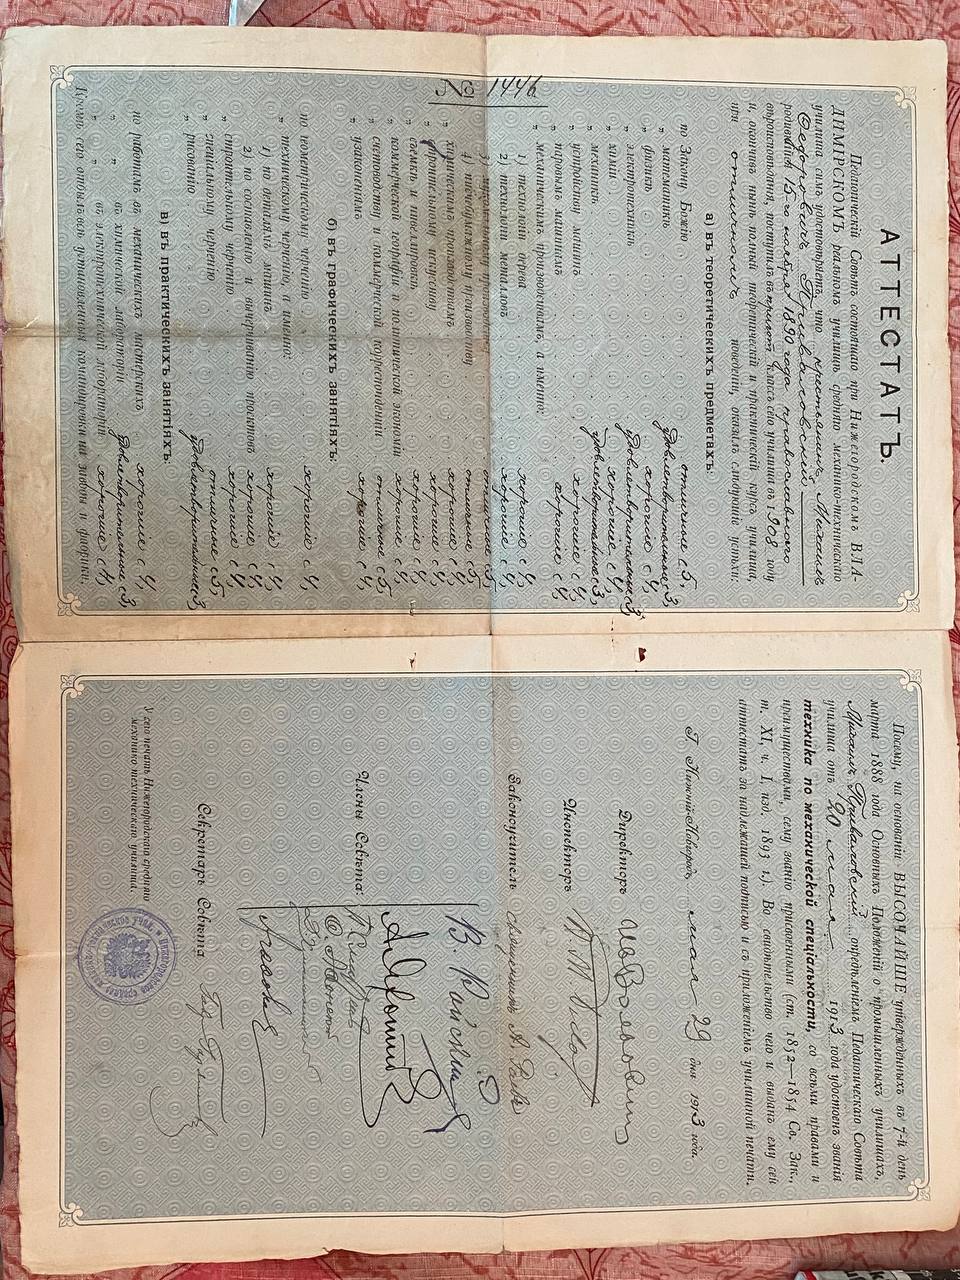 № 1446
АТТЕСТАТЪ.
Педагогическій Совѣтъ состоящаго при Нижегородскомъ ВЛА-
ДИМІРСКОМЪ реальномъ училищѣ средняго механико-техническаго
училища симъ удостовѣряетъ, что крестьянинъ Михаилъ
Федоровичъ Приваловскій
родившійся 6го ноября 1890 года, православнаго
вѣроисповѣданія, поступилъ въ первый классъ сего училища въ 1908 году
и, окончивъ нынѣ полный теоретическій и практическій курсъ училища,
при отличномъ поведеніи, оказалъ слѣдующіе успѣхи:
а) въ теоретическихъ предметахъ:
по Закону Божію отличные 5,
„ математикѣ удовлетворительные 3,
„ физикѣ хорошіе 4,
„ электротехникѣ удовлетворительные 3,
„ химіи хорошіе 4,
„ механикѣ удовлетворительные 3,
„ устройству машинъ хорошіе 4,
„ паровымъ машинамъ хорошіе 4,
„ механическимъ производствамъ, а именно:
1) технологіи дерева хорошіе 4,
2) технологіи металловъ хорошіе 4,
3) отличные 5,
4) писчебумажному производству отличные 5,
„ химическимъ производствамъ хорошіе 4,
„ строительному искусству хорошіе 4,
„ съемкѣ и нивеллировкѣ хорошіе 4,
„ коммерческой географіи и политической экономіи хорошіе 4,
„ счетоводству и коммерческой корреспонденціи отличные 5,
„ узаконеніямъ хорошіе 4,
б) въ графическихъ занятіяхъ:
по геометрическому черченію хорошіе 4,
„ техническому черченію, а именно:
1) по деталямъ машинъ хорошіе 4,
2) по составленію и вычерчиванію проектовъ хорошіе 4,
„ строительному черченію хорошіе 4,
„ спеціальному черченію отличные 5,
„ рисованію удовлетворительные 3,
в) въ практическихъ занятіяхъ:
по работамъ въ механическихъ мастерскихъ хорошіе 4,
„ „ въ химической лабораторіи удовлетворительные 3,
„ „ въ электротехнической лабораторіи хорошіе 4,
Кромѣ сего отбылъ установленныя командировки на заводы и фабрики.
Посему, на основаніи ВЫСОЧАЙШЕ утвержденныхъ въ 7-й день
марта 1888 года Основныхъ Положеній о промышленныхъ училищахъ,
Михаилъ Приваловскій опредѣленіемъ Педагогическаго Совѣта
училища отъ 20 мая 1913 года удостоенъ званія
техника по механической спеціальности, со всѣми правами и
преимуществами, сему званію присвоенными (ст. 1852—1854 Св. Зак.,
т. XI, ч. I, изд. 1893 г.). Во свидѣтельство чего и выданъ ему сей
аттестатъ за надлежащей подписью и съ приложеніемъ училищной печати.
Г. Нижній-Новгородъ мая 29 дня 1913 года.
Директоръ
Инспекторъ
Законоучитель священникъ
Члены Совѣта:
Секретарь Совѣта
У сего печать Нижегородскаго средняго
механико-техническаго училища.